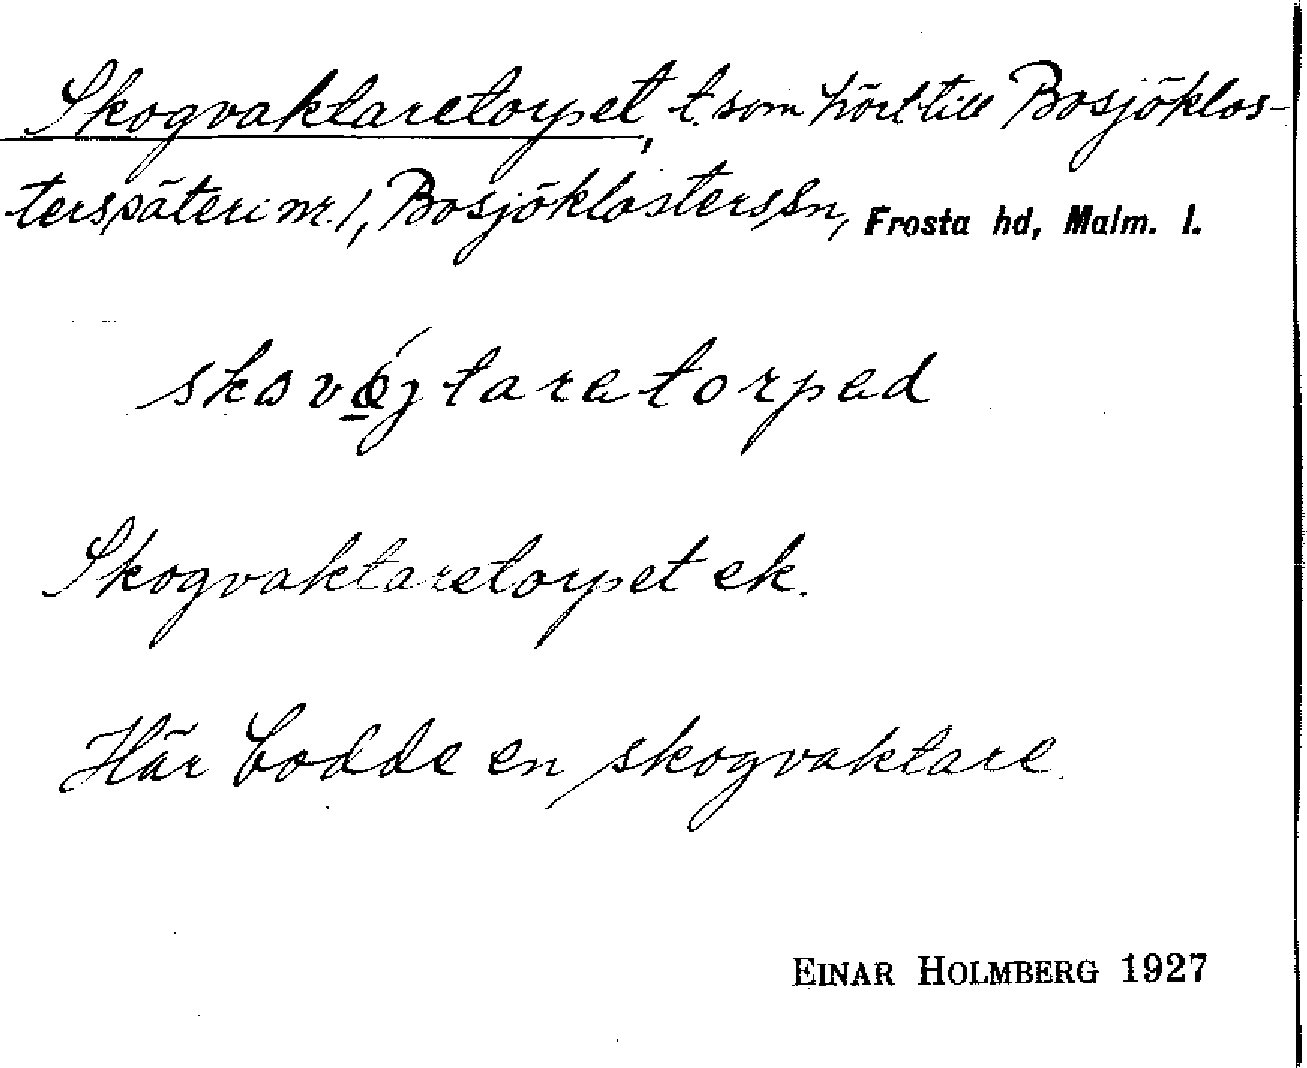 Skogvaktaretorpet, t. som hört till Bosjöklos-
terssäteri nr. 1, Bosjöklosters sn, Frosta hd, Malm. l.
Skogvaktaretorpet ek.
Här bodde en skogvaktare.
EINAR HOLMBERG 1927